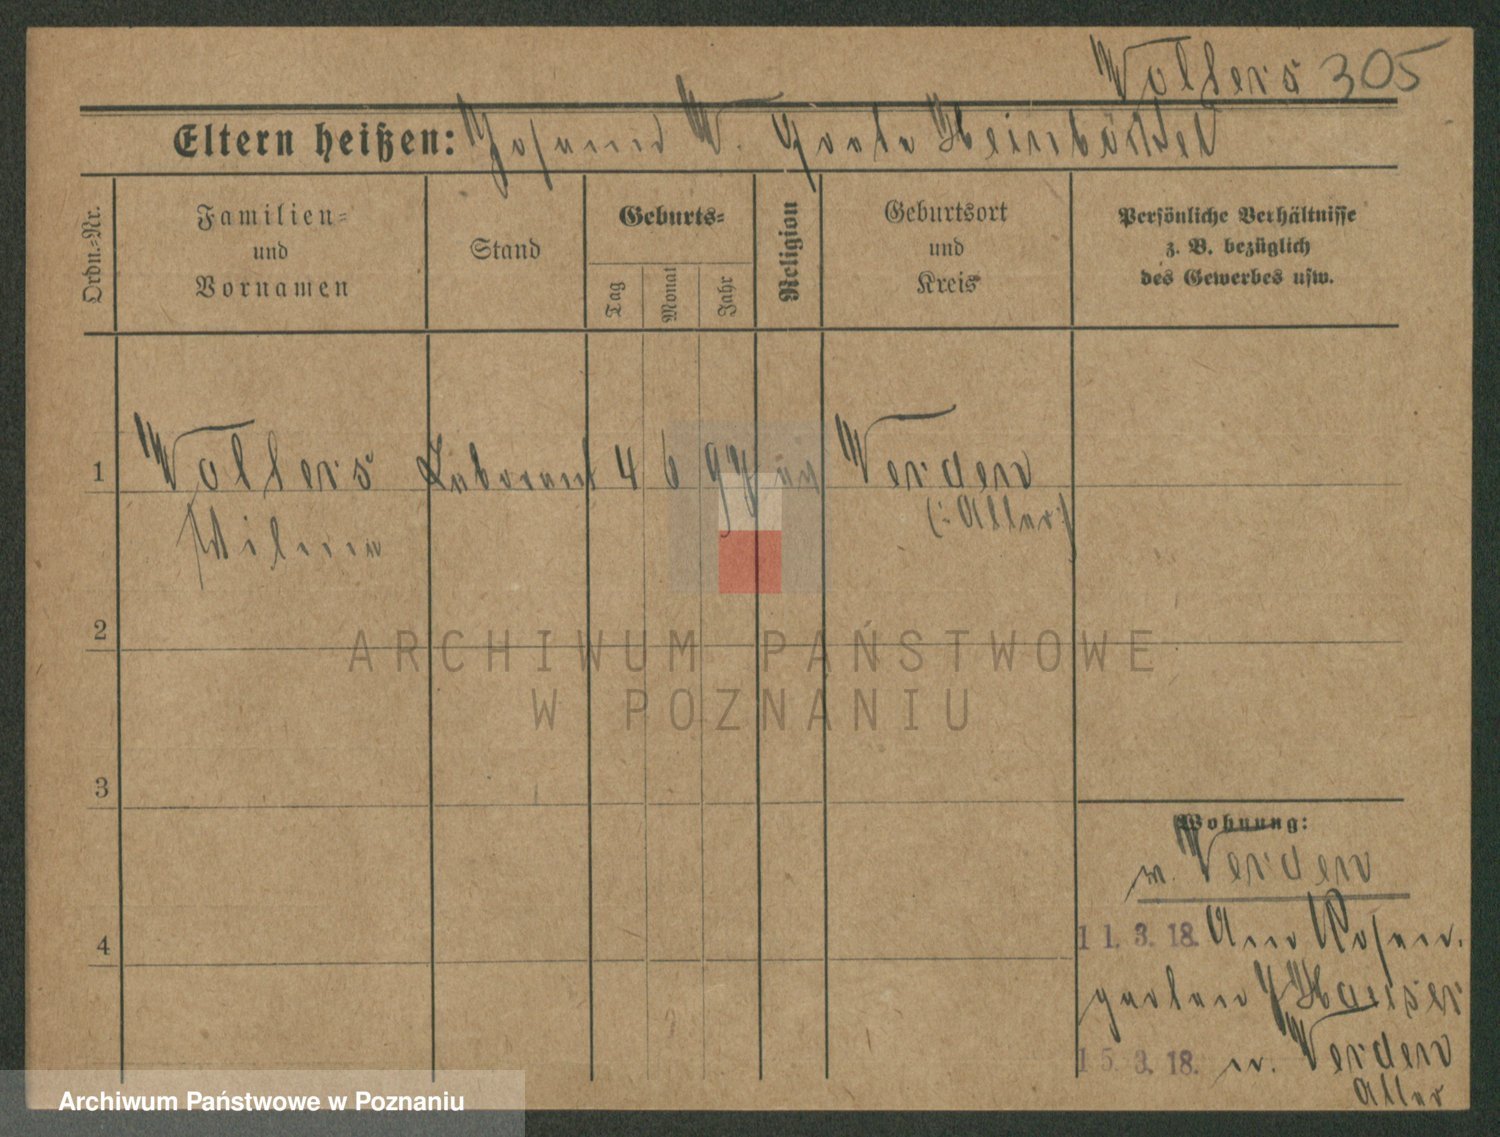 Wolfers 305
Eltern heißen: Johann W. Heimbökel
Ordn.=Nr.
Familien=
und
Vornamen
Stand
Geburts=
Tag
Monat
Jahr
Religion
Geburtsort
und
Kreis
Persönliche Verhältnisse
z. B. bezüglich
des Gewerbes usw.
1 Wolfers Laborant 4 6 97 Verden
(: Aller :)
2
3
4
Wohnung:
Verden
11. 3. 18. Am Rosen-
garten
15. 3. 18. Verden
Aller
ARCHIWUM PAŃSTWOWE
W POZNANIU
Archiwum Państwowe w Poznaniu